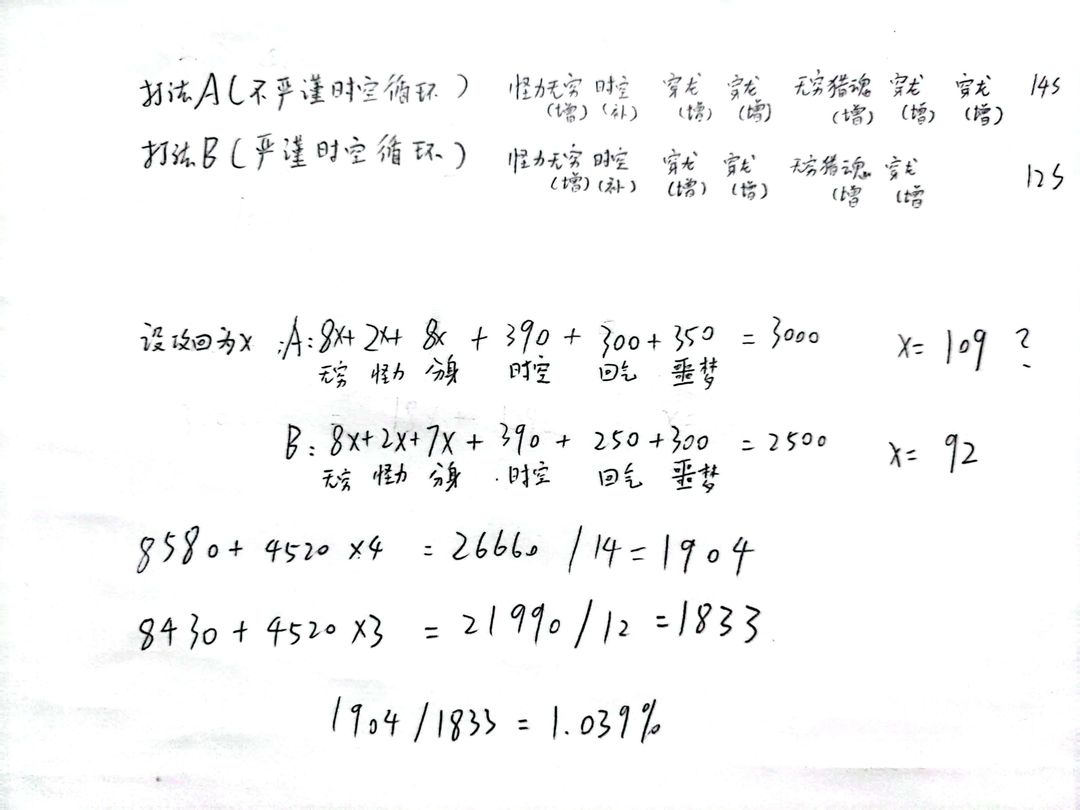 打法A(不严谨时空循环) 怪力无穷 时空 穿龙 穿龙 无穷猎魂 穿龙 穿龙 14S
(增) (补) (增) (增) (增) (增) (增)
打法B(严谨时空循环) 怪力无穷 时空 穿龙 穿龙 无穷猎魂 穿龙 12S
(增) (补) (增) (增) (增 (增
设攻回为x :A: 8x+2x+ 8x + 390 + 300+350 = 3000 x= 109 ?
无穷 怪力 分身 时空 回气 噩梦
B: 8x+2x+7x + 390 + 250+300 = 2500 x= 92
无穷 怪力 分身 时空 回气 噩梦
8580+ 4520 x4 = 26660 /14=1904
8430+4520x3 = 21990/12=1833
1904/1833=1.039%